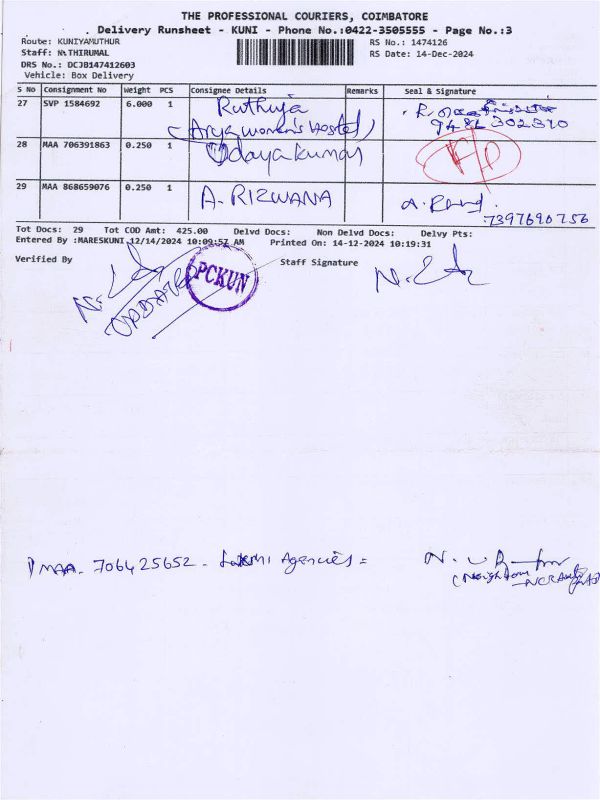 THE PROFESSIONAL COURIERS, COIMBATORE
Delivery Runsheet - KUNI - Phone No.:0422-3505555 - Page No.:3
Route: KUNIYAMUTHUR RS No.: 1474126
Staff: N.THIRUMAL RS Date: 14-Dec-2024
DRS No.: DCJB147412603
Vehicle: Box Delivery
S No Consignment No Weight PCS Consignee Details Remarks Seal & Signature
27 SVP 1584692 6.000 1 Ruthuja
(Arya women's Hostel) 302310
28 MAA 706391863 0.250 1 Udayakumar
29 MAA 868659076 0.250 1 A. RIZWANA
7397690756
Tot Docs: 29 Tot COD Amt: 425.00 Delvd Docs: Non Delvd Docs: Delvy Pts:
Entered By :MARESKUNI 12/14/2024 10:09:57 AM Printed On: 14-12-2024 10:19:31
Verified By Staff Signature
PCKUN
UPDATED
MAA. 706425652 - Laxmi Agencies =